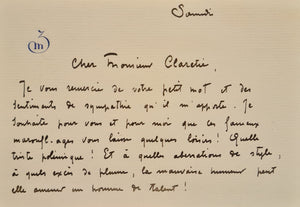 Samedi
Cher Monsieur Claretie,
Je vous remercie de votre petit mot et des
sentiments de sympathie qu'il m'apporte. Je
souhaite pour vous et pour moi que ces fameux
marouflages vous laisse quelques loisirs! Quelle
triste polémique! Et à quelles aberrations de style,
à quels excès de plume, la mauvaise humeur peut
elle amener un homme de talent!